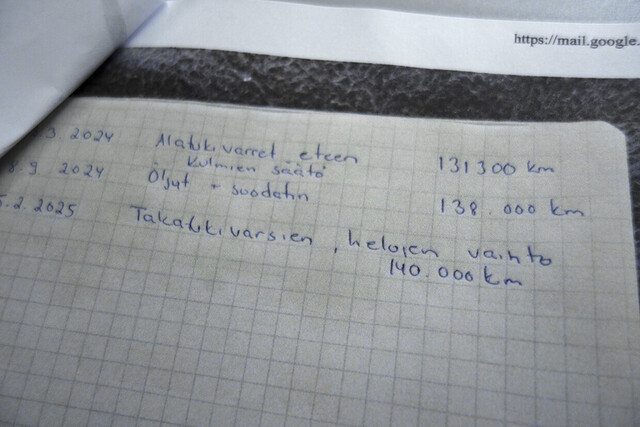 https://mail.google.
3 2024 Alatukivarret eteen 131300 km
Kulmien säätö
8.9. 2024 Öljyt + suodatin 138.000 km
5.2.2025 Takatukivarsien, helojen vaihto
140.000 km